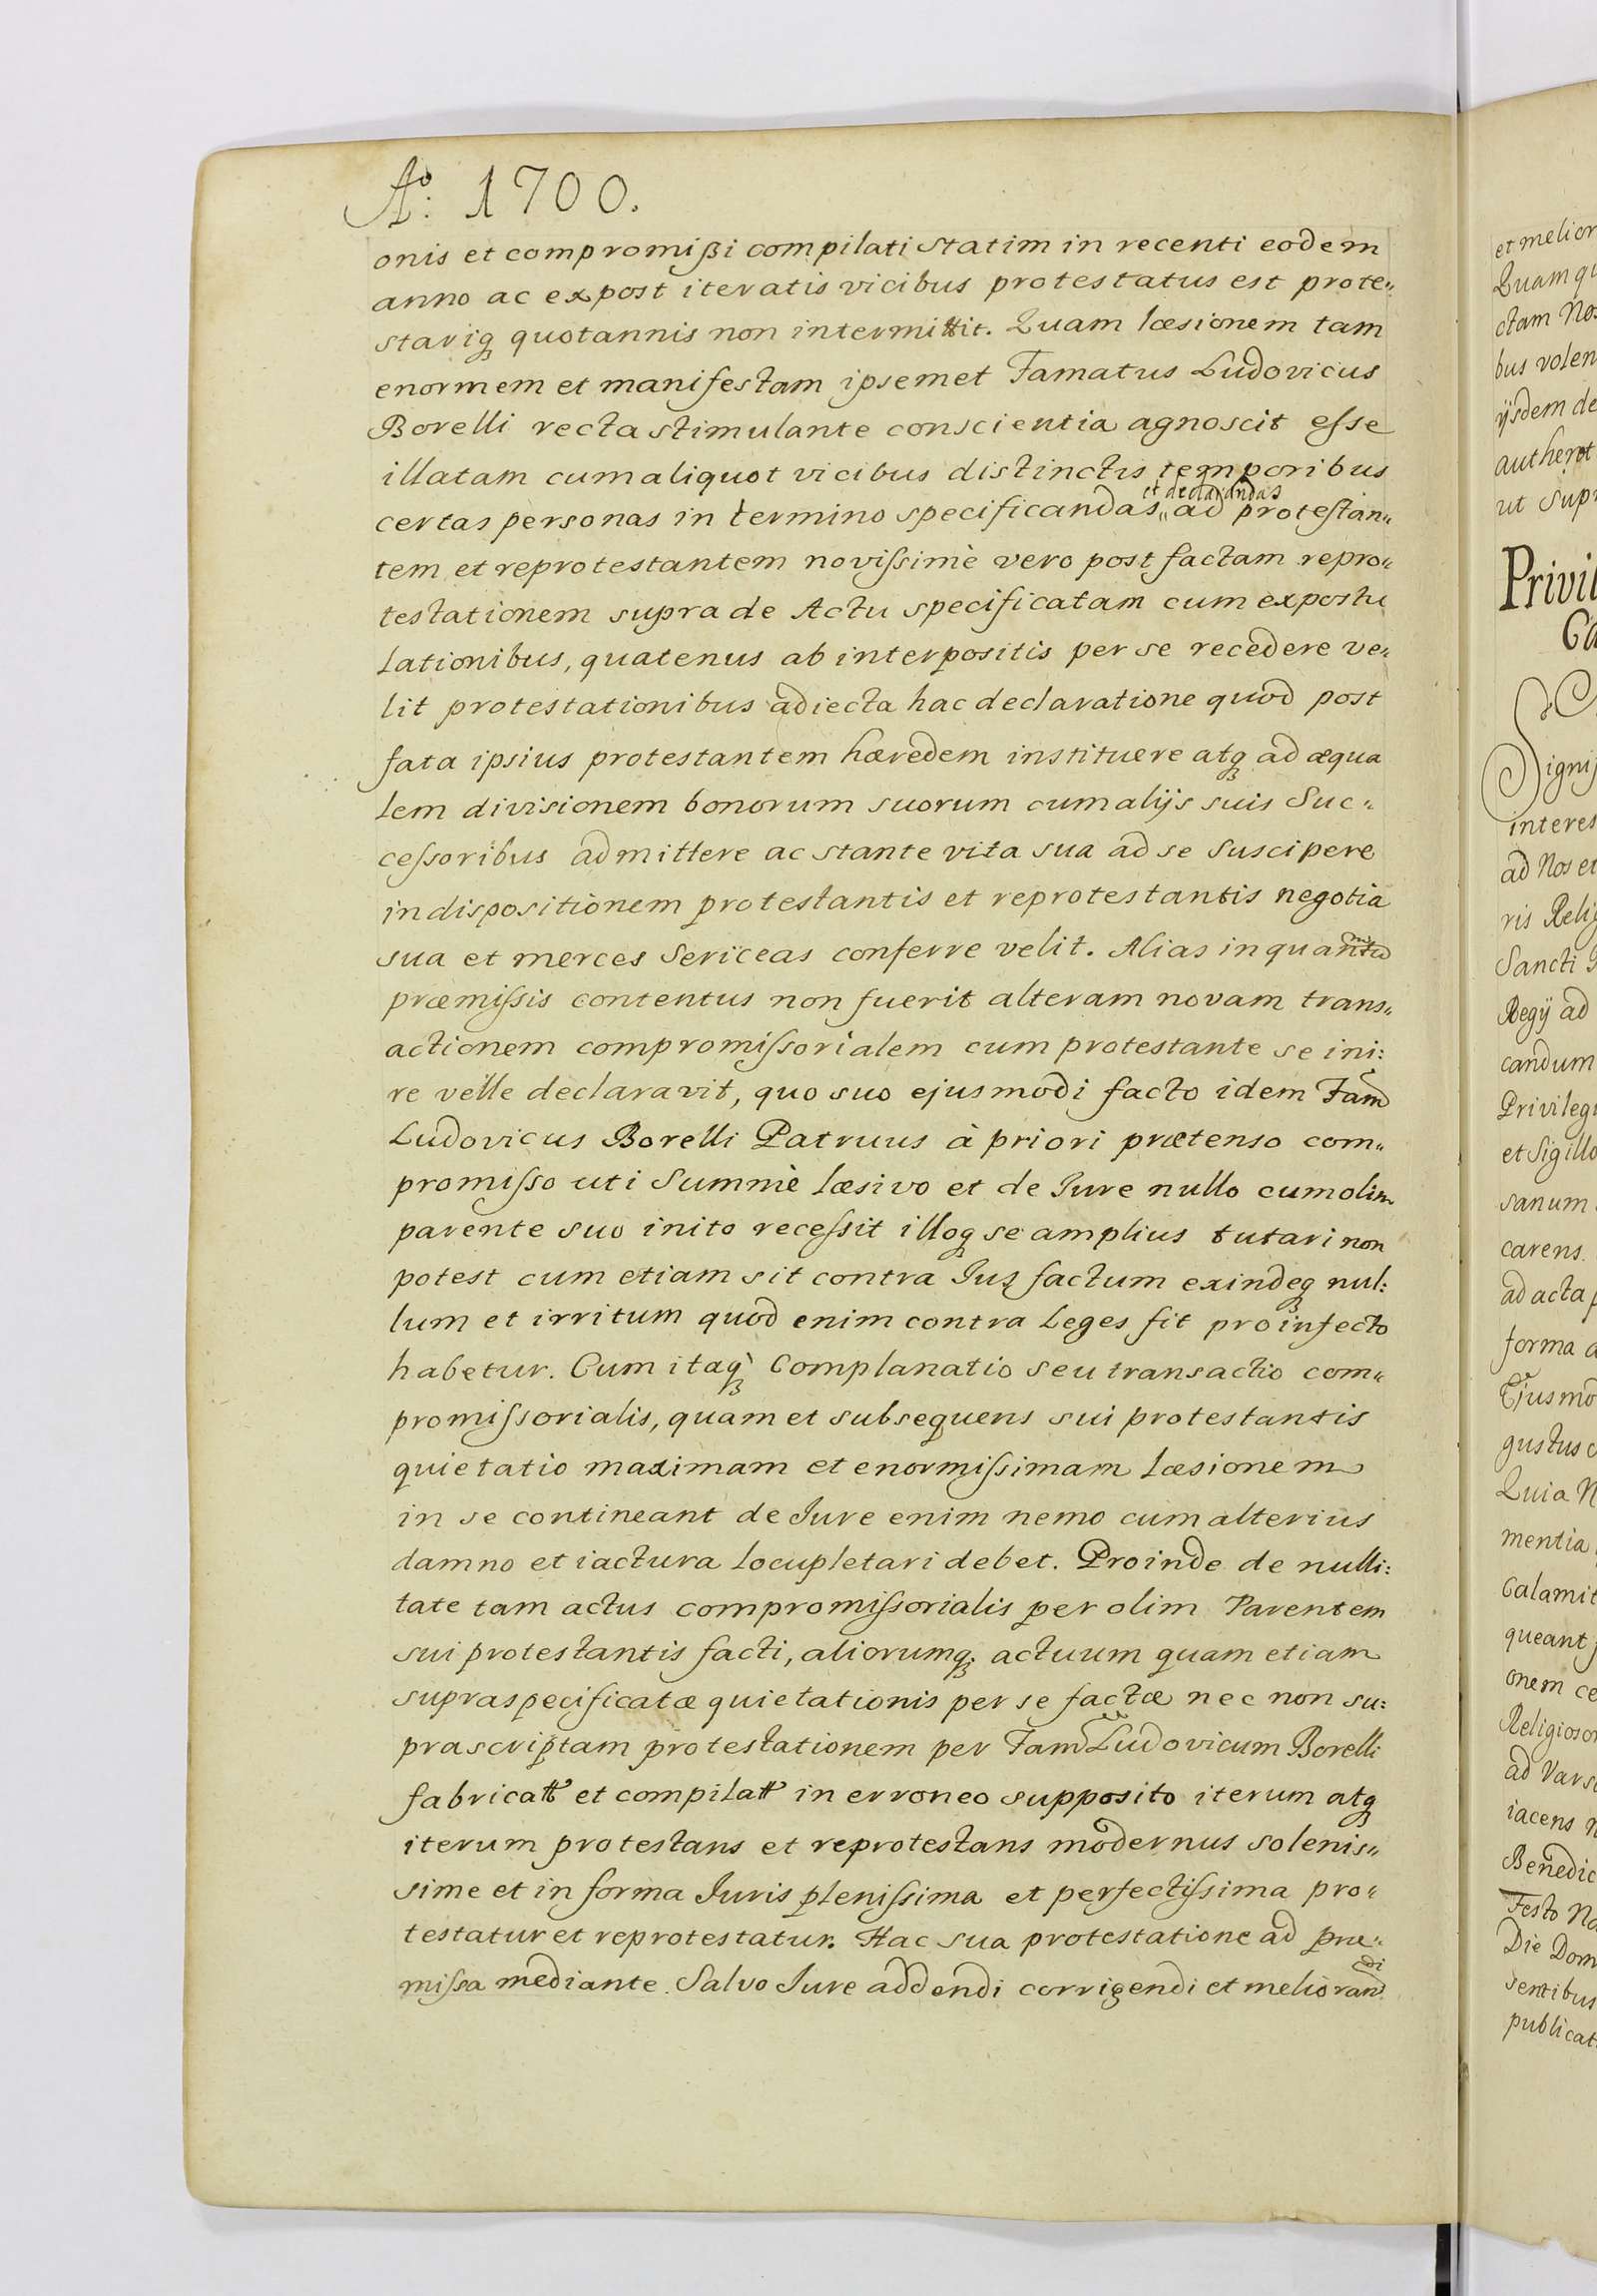 Aº: 1700.
onis et compromißi compilati statim in recenti eodem
anno ac expost iteratis vicibus protestatus est prote„
stariq quotannis non intermittit. Quam læsionem tam
enormem et manifestam ipsemet Famatus Ludovicus
Borelli recta stimulante conscientia agnoscit eſse
illatam cum aliquot vicibus distinctis temporibus
et declarandas
certas personas in termino specificandas„ ad proteſtan„
tem et reprotestantem noviſsimè vero post factam repro„
testationem supra de Actu specificatam cum expostu
lationibus, quatenus ab interpositis per se recedere ve„
lit protestationibus adiecta hac declaratione quod post
fata ipsius protestantem hæredem instituere atq ad æqua
lem divisionem bonorum suorum cum alijs suis Suc„
ceſsoribus admittere ac stante vita sua ad se suscipere
in dispositionem protestantis et reprotestantis negotia
sua et merces Sericeas conferre velit. Alias in quantu
præmiſsis contentus non fuerit alteram novam trans„
actionem compromiſsorialem cum protestante se ini:
re velle declaravit, quo suo ejusmodi facto idem Fam
Ludovicus Borelli Patruus à priori prætenso com„
promiſso uti Summè læsivo et de Jure nullo cum olim
parente suo inito receſsit illoq se amplius tutari non
potest cum etiam sit contra Jus factum exindeq nul:
lum et irritum quod enim contra Leges fit pro infecto
habetur. Cum itaq Complanatio seu transactio com„
promiſsorialis, quam et subsequens sui protestantis
quietatio maximam et enormiſsimam læsionem
in se contineant de Jure enim nemo cum alterius
damno et iactura locupletari debet. Proinde de nulli:
tate tam actus compromiſsorialis per olim Parentem
sui protestantis facti, aliorumq. actuum quam etiam
supraspecificatæ quietationis per se factæ nec non su:
prascriptam protestationem per Fam Ludovicum Borelli
fabricatt et compilatt in erroneo supposito iterum atq
iterum protestans et reprotestans modernus solenis„
sime et in forma Juris pleniſsima et perfectiſsima pro„
testatur et reprotestatur. Hac sua protestatione ad præ„
miſsa mediante. Salvo Jure addendi corrigendi et meliorandi
et melior
Quam qu
ctam Nos
bus volen
ijsdem de
authent
ut Supr
Privil
Ca
Signif
interes
ad Nos et
ris Relig
Sancti
Regij ad
candum
Privilegi
et Sigillo
sanum
carens.
ad acta p
forma a
Ejusmo
gustus c
Quia N
mentia
Calamit
queant
onem ce
Religiosor
ad Vars
iacens n
Benedic
Festo Na
Die Dom
sentibus
publicat